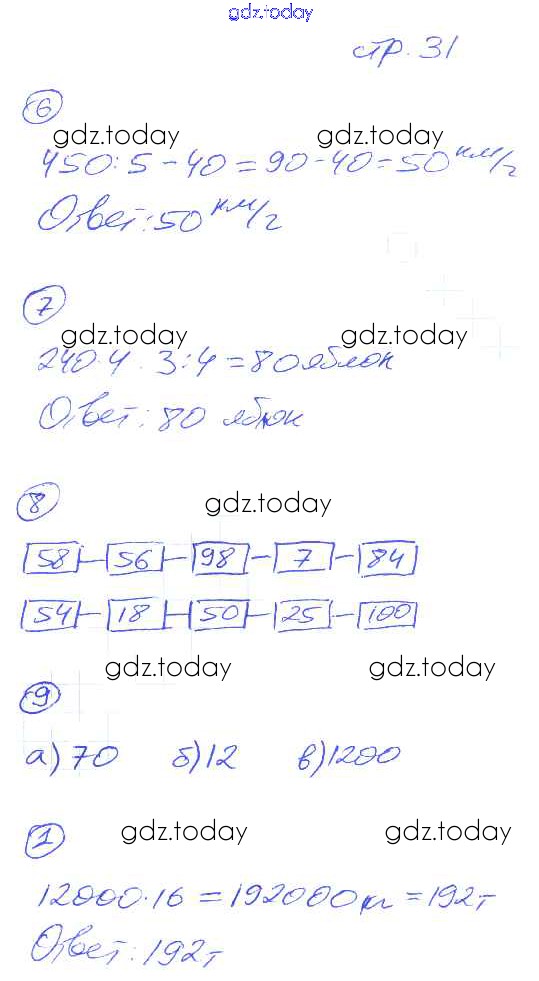 gdz.today
стр. 31
6
gdz.today gdz.today
450:5-40=90-40=50 км/ч
Ответ: 50 км/ч
7
gdz.today gdz.today
240·4·3:4=80 яблок
Ответ: 80 яблок
8
gdz.today
58 - 56 - 98 - 7 - 84
54 - 18 - 50 - 25 - 100
gdz.today gdz.today
9
а) 70 б) 12 в) 1200
1
gdz.today gdz.today
12000·16=192000 кг=192т
Ответ: 192т